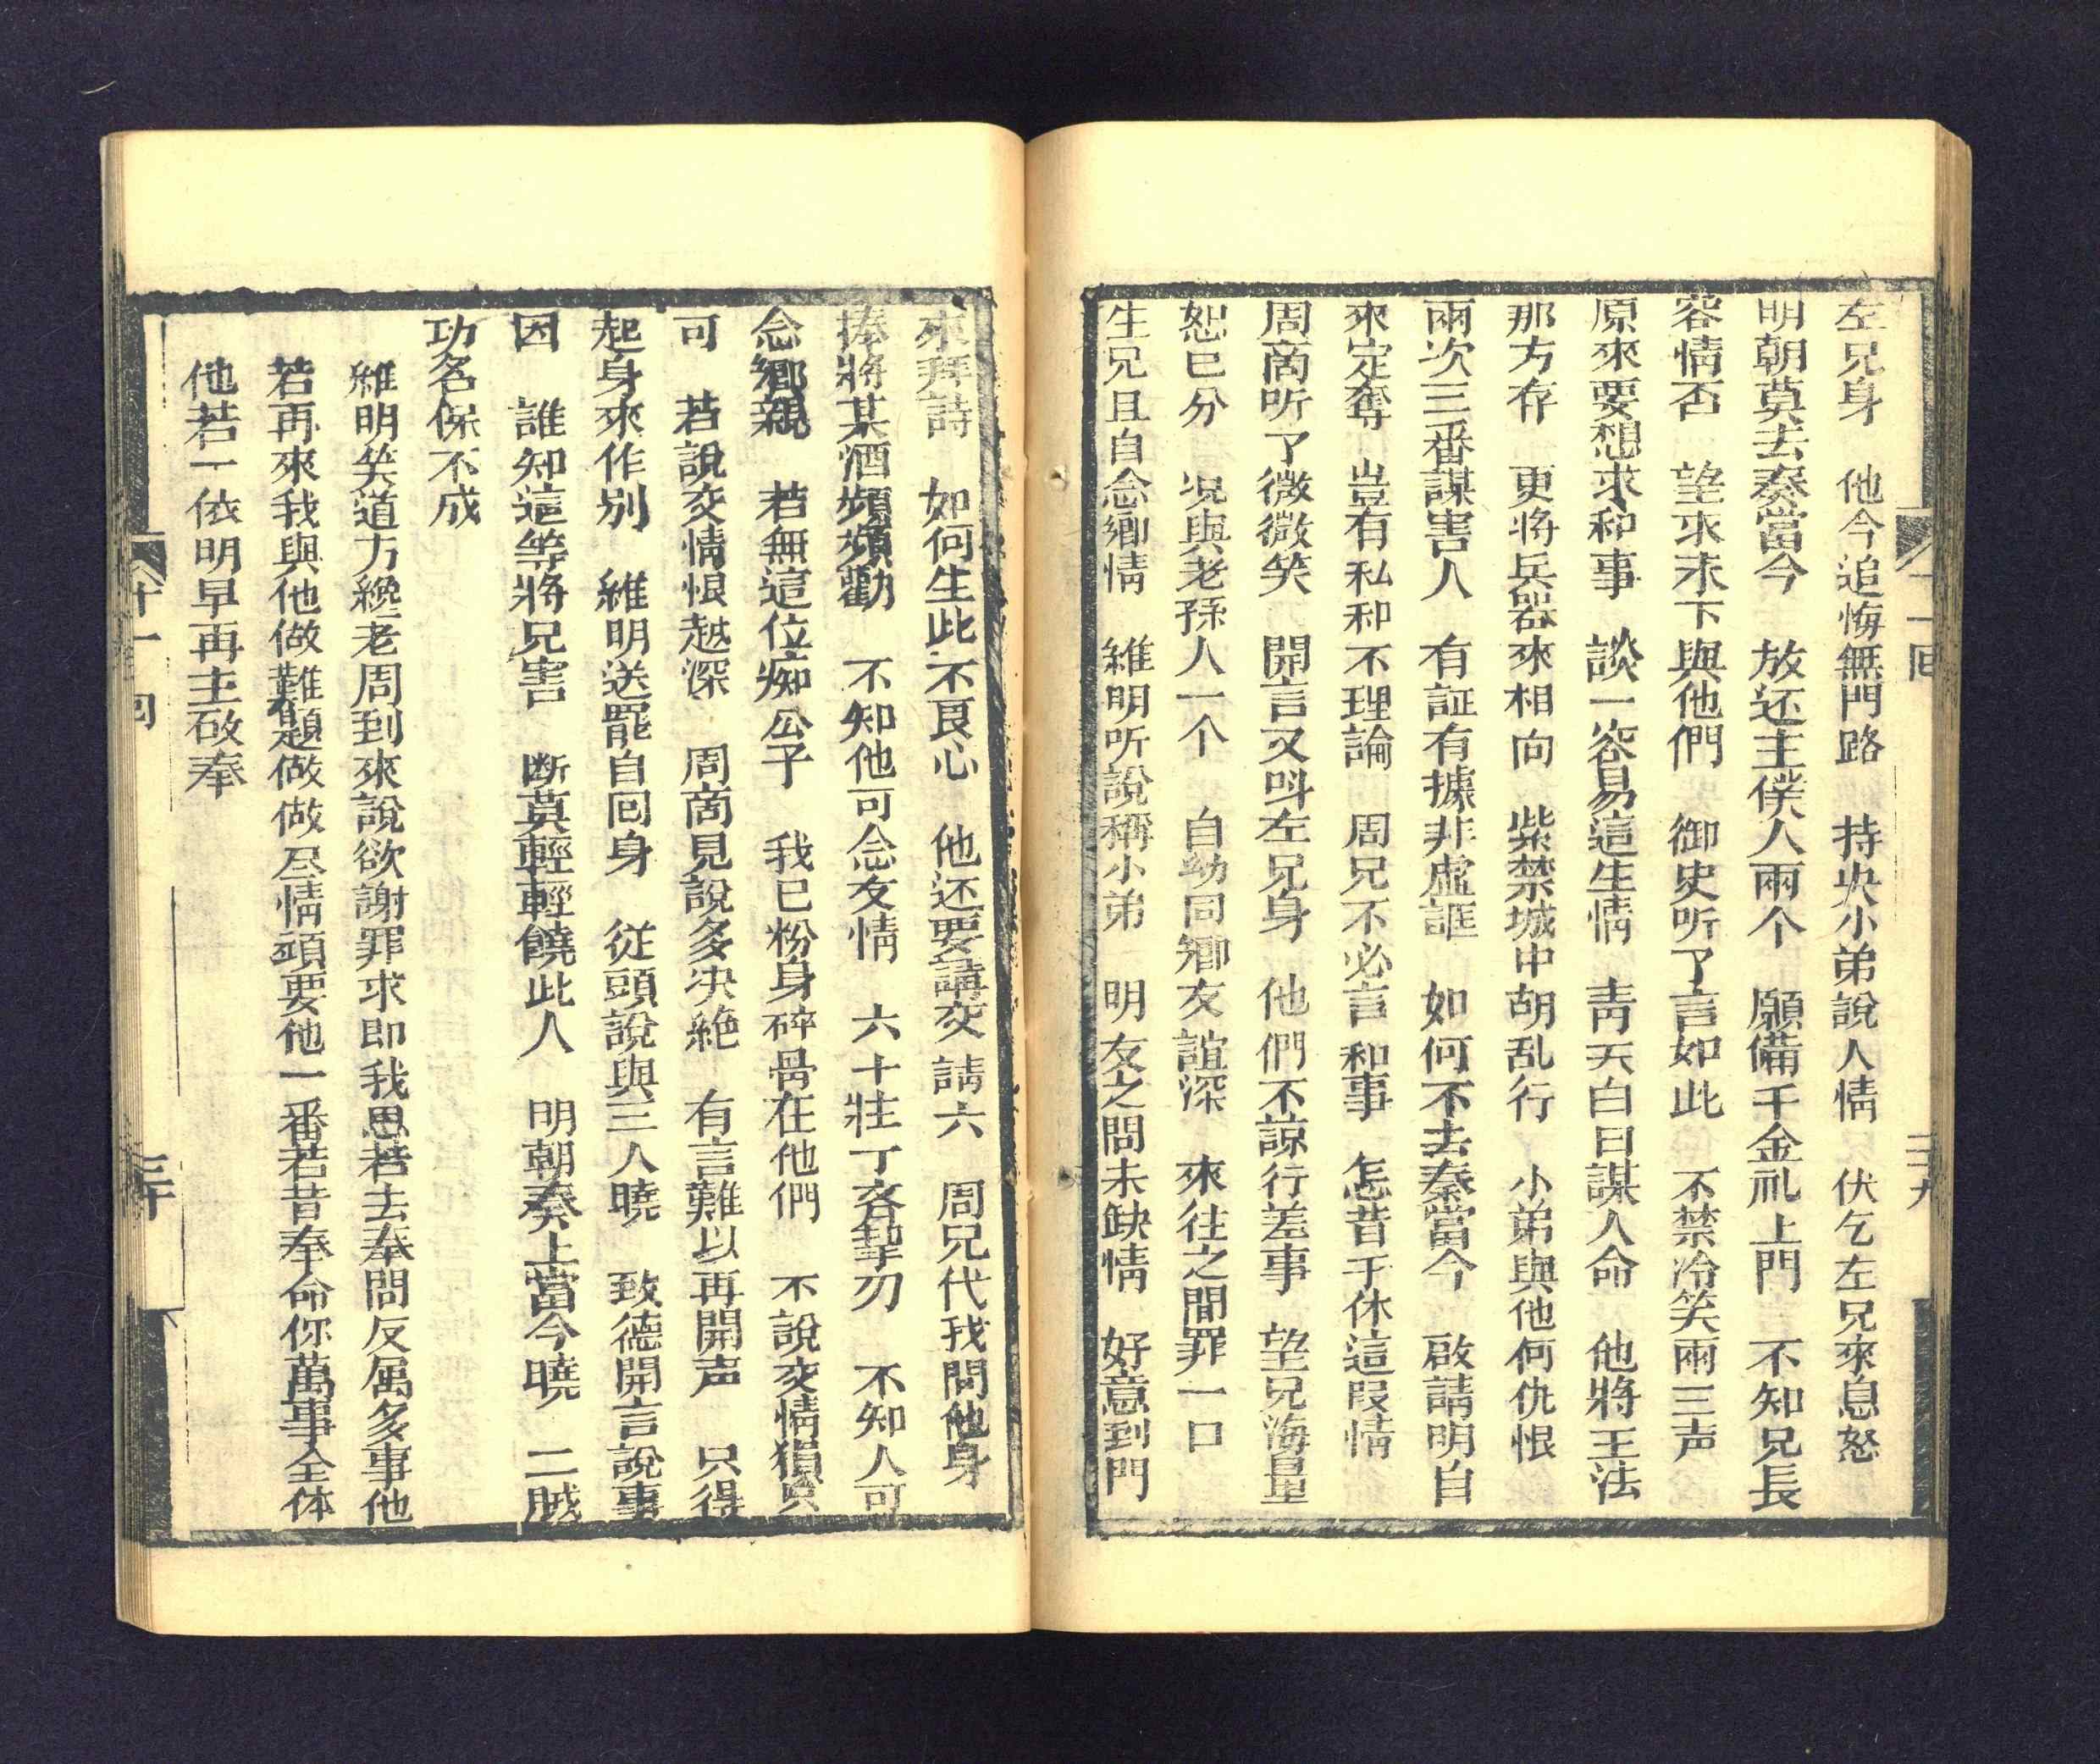 左兄身　他今追悔無門路　持央小弟說人情　伏乞左兄來息怒
明朝莫去奏當今　放还主僕人兩个　願備千金礼上門　不知兄長
容情否　望求未下與他們　御史听了言如此　不禁冷笑兩三声
原來要想求和事　談一容易這生情　青天白日謀人命　他將王法
那方存　更將兵器來相向　紫禁城中胡乱行　小弟與他何仇恨
兩次三番謀害人　有証有據非虛誑　如何不去奏當今　啟請明自
來定奪　豈有私和不理論　周兄不必言和事　怎昔于休這叚情
周商听了微微笑　開言又呌左兄身　他們不諒行差事　望兄海量
恕已分　况與老孫人一个　自幼同鄉友誼深　來往之間罪一口
生兄且自念鄉情　維明听說稱小弟　明友之問未缺情　好意到門
十一回　二十九
來拜詩　如何生此不良心　他还要講交請六　周兄代我問他身
捧將某酒頻頻勸　不知他可念友情　六十壯丁客挚刃　不知人可
念鄉親　若無這位痴公子　我已粉身碎骨在他們　不說交情猶只
可　若說交情恨越深　周商見說多决絶　有言難以再開声　只得
起身來作别　維明送罷自囘身　從頭說與三人曉　致德開言說事
因　誰知這等將兄害　断莫輕輕饒此人　明朝奏上當今曉　二賊
功名保不成
維明笑道方纔老周到來說欲謝罪求即我思若去奉問反属多事他
若再來我與他做難題做做尽情頭要他一番若昔奉命你萬事全体
他若一依明早再主啟奉
十一回　三十